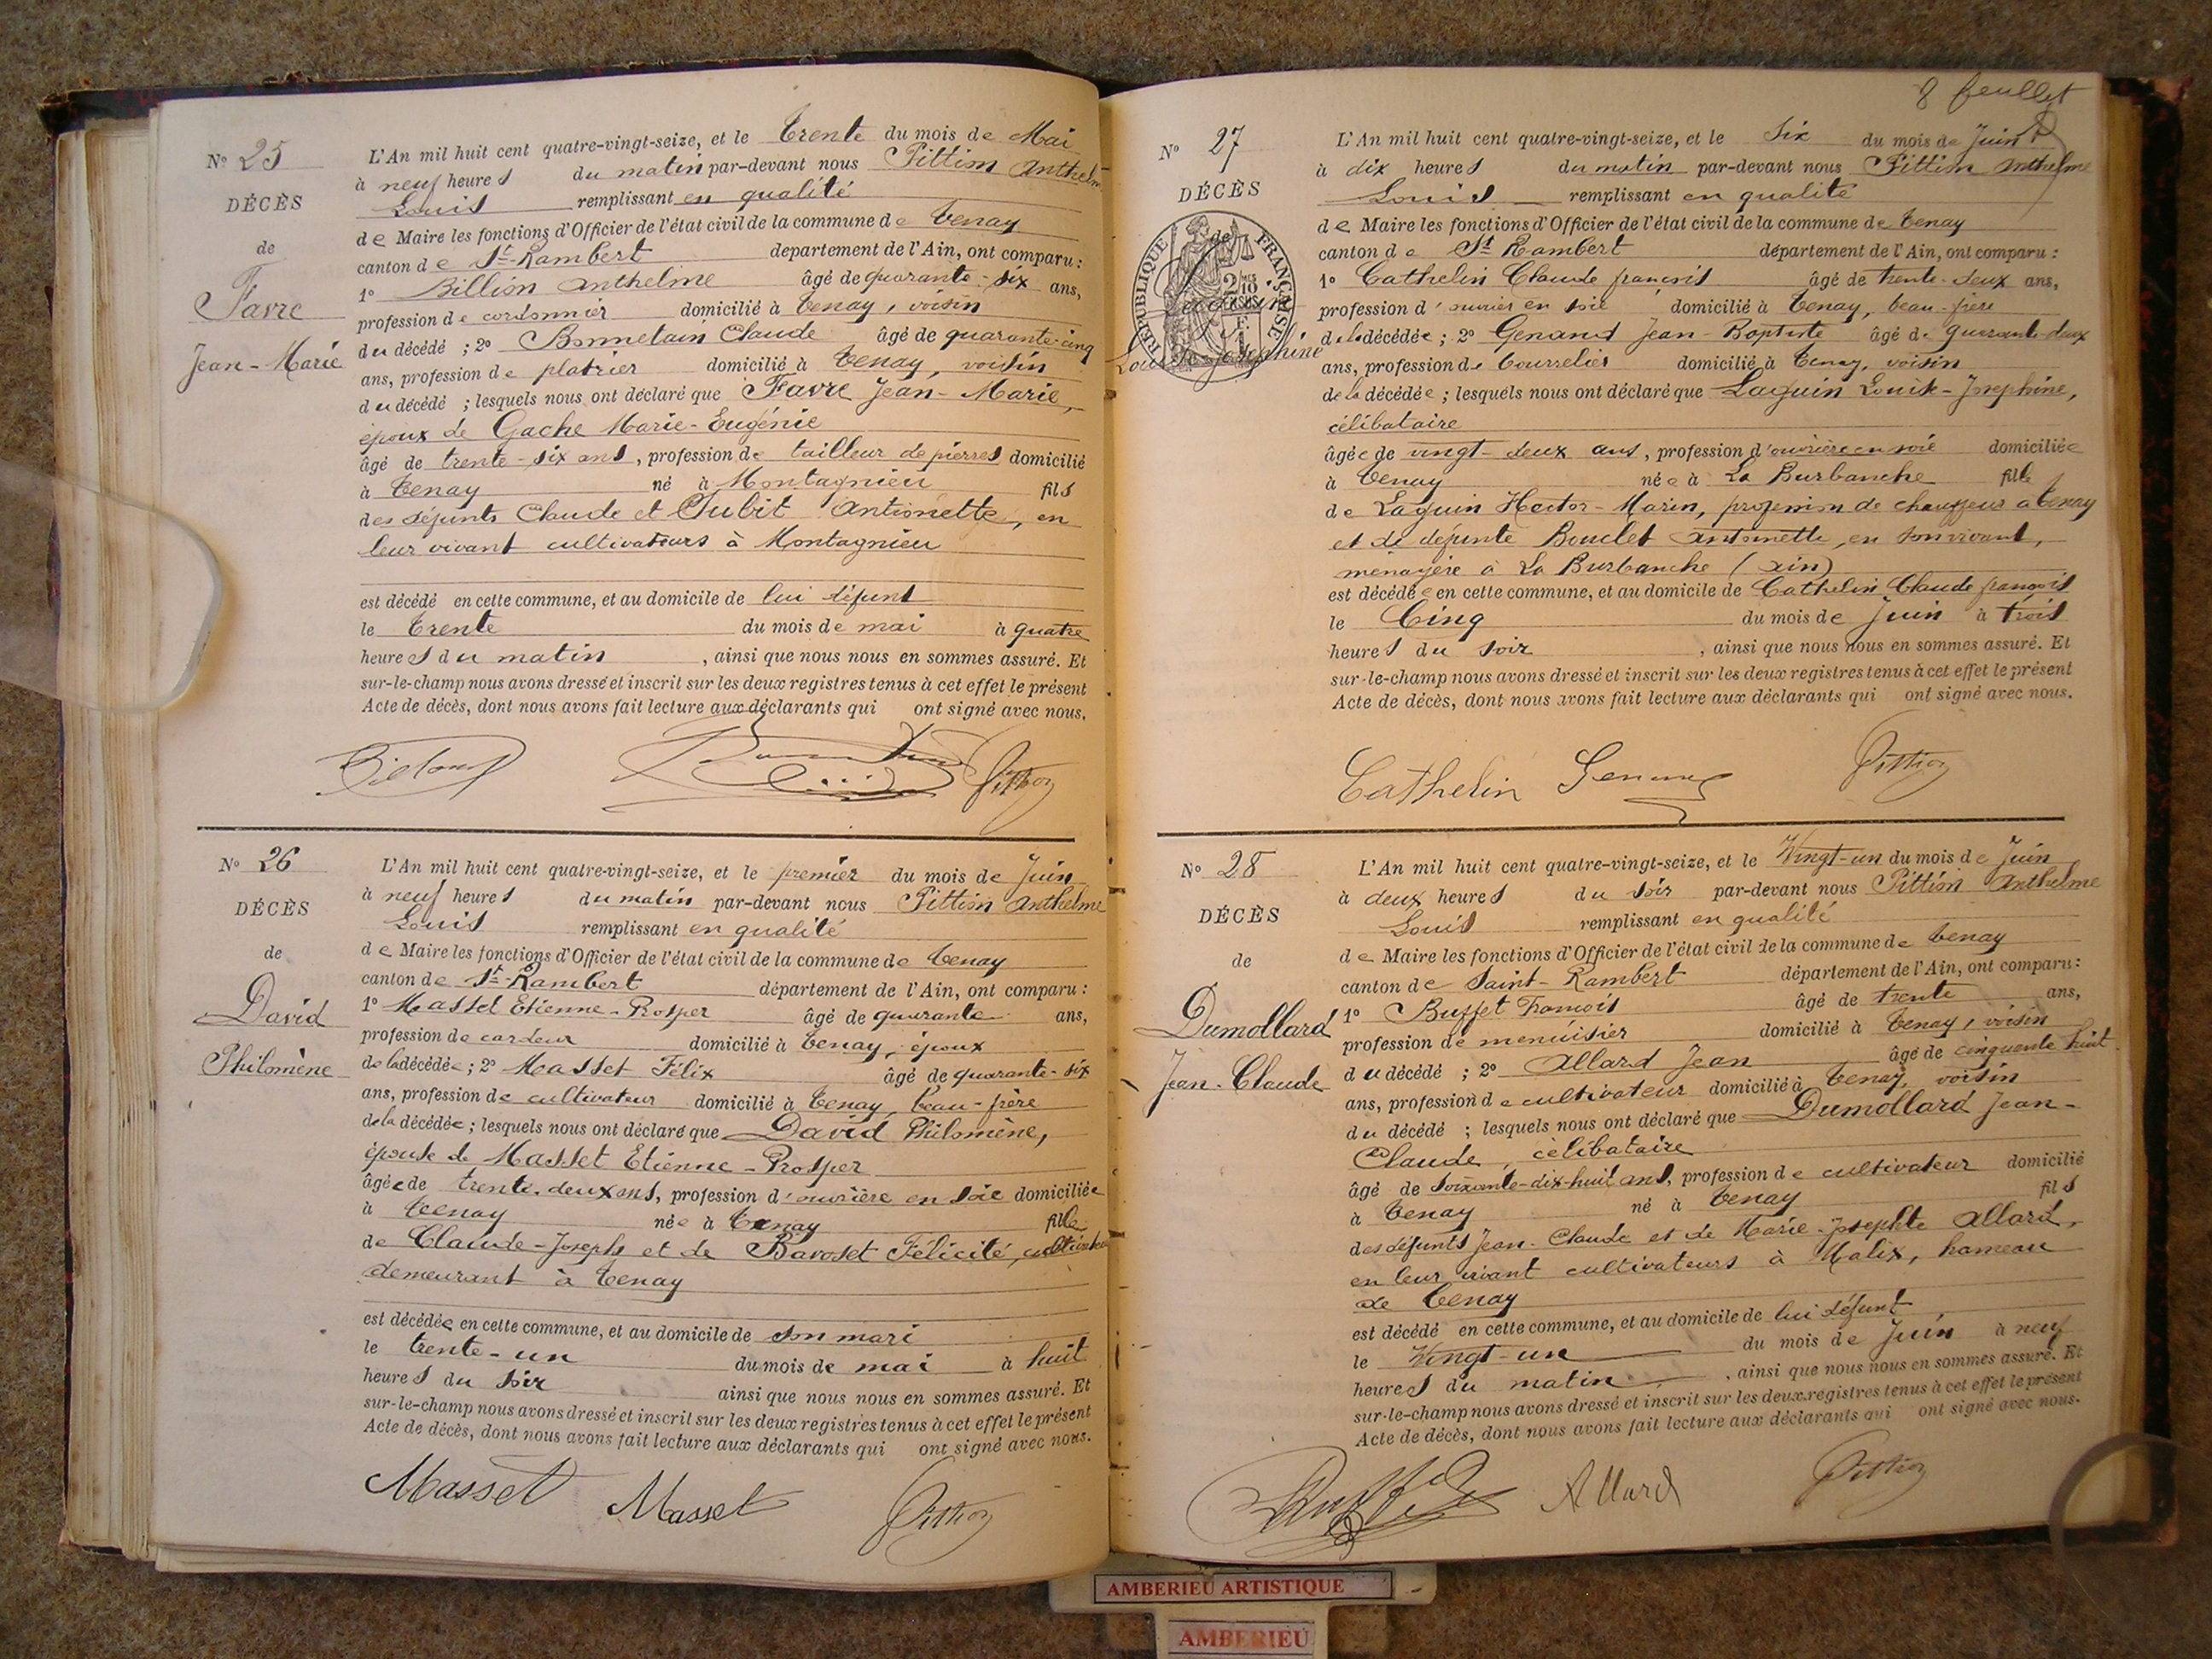 Nº 25
DÉCÈS
de
Favre
Jean-Marie
L'An mil huit cent quatre-vingt-seize, et le trente du mois de Mai
à neuf heures du matin par-devant nous Pittion Anthelme
Louis remplissant en qualité
de Maire les fonctions d'Officier de l'état civil de la commune de Tenay
canton de St-Rambert département de l'Ain, ont comparu :
1º Billion Anthelme âgé de quarante-six ans,
profession de cordonnier domicilié à Tenay, voisin
du décédé ; 2º Bonnetain Claude âgé de quarante-cinq
ans, profession de platrier domicilié à Tenay, voisin
du décédé ; lesquels nous ont déclaré que Favre Jean-Marie,
époux de Gache Marie-Eugénie
âgé de trente-six ans, profession de tailleur de pierres domicilié
à Tenay né à Montagnieu fils
des défunts Claude et Jubit Antoinette, en
leur vivant cultivateurs à Montagnieu
est décédé en cette commune, et au domicile de lui défunt
le trente du mois de mai à quatre
heures du matin, ainsi que nous nous en sommes assuré. Et
sur-le-champ nous avons dressé et inscrit sur les deux registres tenus à cet effet le présent
Acte de décès, dont nous avons fait lecture aux déclarants qui ont signé avec nous.
Pittion
Nº 26
DÉCÈS
de
David
Philomène
L'An mil huit cent quatre-vingt-seize, et le premier du mois de Juin
à neuf heures du matin par-devant nous Pittion Anthelme
Louis remplissant en qualité
de Maire les fonctions d'Officier de l'état civil de la commune de Tenay
canton de St-Rambert département de l'Ain, ont comparu :
1º Masset Etienne-Prosper âgé de quarante ans,
profession de cardeur domicilié à Tenay, époux
de la décédée ; 2º Masset Félix âgé de quarante-six
ans, profession de cultivateur domicilié à Tenay, beau-frère
de la décédée ; lesquels nous ont déclaré que David Philomène,
épouse de Masset Etienne-Prosper
âgée de trente-deux ans, profession d'ouvrière en soie domiciliée
à Tenay née à Tenay fille
de Claude-Joseph et de Baroset Félicité,
demeurant à Tenay
est décédée en cette commune, et au domicile de son mari
le trente-un du mois de mai à huit
heures du soir ainsi que nous nous en sommes assuré. Et
sur-le-champ nous avons dressé et inscrit sur les deux registres tenus à cet effet le présent
Acte de décès, dont nous avons fait lecture aux déclarants qui ont signé avec nous.
Masset Masset Pittion
8 feuillet
Nº 27
DÉCÈS
de
RÉPUBLIQUE FRANÇAISE
Louise-Joséphine
L'An mil huit cent quatre-vingt-seize, et le six du mois de Juin
à dix heures du matin par-devant nous Pittion Anthelme
Louis remplissant en qualité
de Maire les fonctions d'Officier de l'état civil de la commune de Tenay
canton de St Rambert département de l'Ain, ont comparu :
1º Cathelin Claude françois âgé de trente-deux ans,
profession d'ouvrier en soie domicilié à Tenay, beau-frère
de la décédée ; 2º Genand Jean-Baptiste âgé de quarante-deux
ans, profession de bourrelier domicilié à Tenay, voisin
de la décédée ; lesquels nous ont déclaré que Laguin Louise-Josephine,
célibataire
âgée de vingt-deux ans, profession d'ouvrière en soie domiciliée
à Tenay née à La Burbanche fille
de Laguin Hector-Marin, profession de chauffeur a Tenay
et de défunte Bouclet Antoinette, en son vivant,
ménagère à La Burbanche (Ain)
est décédée en cette commune, et au domicile de Cathelin Claude françois
le Cinq du mois de Juin à trois
heures du soir, ainsi que nous nous en sommes assuré. Et
sur-le-champ nous avons dressé et inscrit sur les deux registres tenus à cet effet le présent
Acte de décès, dont nous avons fait lecture aux déclarants qui ont signé avec nous.
Cathelin Genand Pittion
Nº 28
DÉCÈS
de
Dumollard
Jean-Claude
L'An mil huit cent quatre-vingt-seize, et le Vingt-un du mois de Juin
à deux heures du soir par-devant nous Pittion Anthelme
Louis remplissant en qualité
de Maire les fonctions d'Officier de l'état civil de la commune de Tenay
canton de Saint-Rambert département de l'Ain, ont comparu :
1º Buffet François âgé de trente ans,
profession de menuisier domicilié à Tenay, voisin
du décédé ; 2º Allard Jean âgé de cinquante huit
ans, profession de cultivateur domicilié à Tenay, voisin
du décédé ; lesquels nous ont déclaré que Dumollard Jean-
Claude, célibataire
âgé de soixante-dix-huit ans, profession de cultivateur domicilié
à Tenay né à Tenay fils
des défunts Jean-Claude et de Marie-Josephte Allard,
en leur vivant cultivateurs à Malix, hameau
de Tenay
est décédé en cette commune, et au domicile de lui défunt
le Vingt-un du mois de Juin à neuf
heures du matin, ainsi que nous nous en sommes assuré. Et
sur-le-champ nous avons dressé et inscrit sur les deux registres tenus à cet effet le présent
Acte de décès, dont nous avons fait lecture aux déclarants qui ont signé avec nous.
Buffet Allard Pittion
AMBERIEU ARTISTIQUE
AMBERIEU